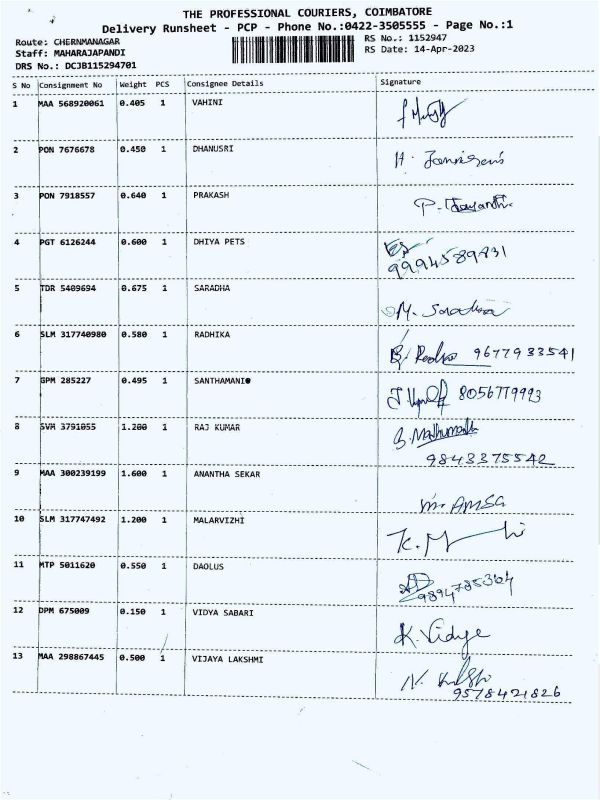 THE PROFESSIONAL COURIERS, COIMBATORE
Delivery Runsheet - PCP - Phone No.:0422-3505555 - Page No.:1
Route: CHERNMANAGAR
RS No.: 1152947
Staff: MAHARAJAPANDI
RS Date: 14-Apr-2023
DRS No.: DCJB115294701
S No Consignment No Weight PCS Consignee Details Signature
1 MAA 568920061 0.405 1 VAHINI
2 PON 7676678 0.450 1 DHANUSRI H.
3 PON 7918557 0.640 1 PRAKASH P. Jayanthi
4 PGT 6126244 0.600 1 DHIYA PETS
9994589831
5 TDR 5409694 0.675 1 SARADHA M. Saradha
6 SLM 317740980 0.580 1 RADHIKA 9677933541
7 GPM 285227 0.495 1 SANTHAMANI 8056779993
8 SVM 3791055 1.200 1 RAJ KUMAR
9843375542
9 MAA 300239199 1.600 1 ANANTHA SEKAR M. AMSA
10 SLM 317747492 1.200 1 MALARVIZHI
11 MTP 5011620 0.550 1 DAOLUS
9894785364
12 DPM 675009 0.150 1 VIDYA SABARI K. Vidya
13 MAA 298867445 0.500 1 VIJAYA LAKSHMI
9578421826